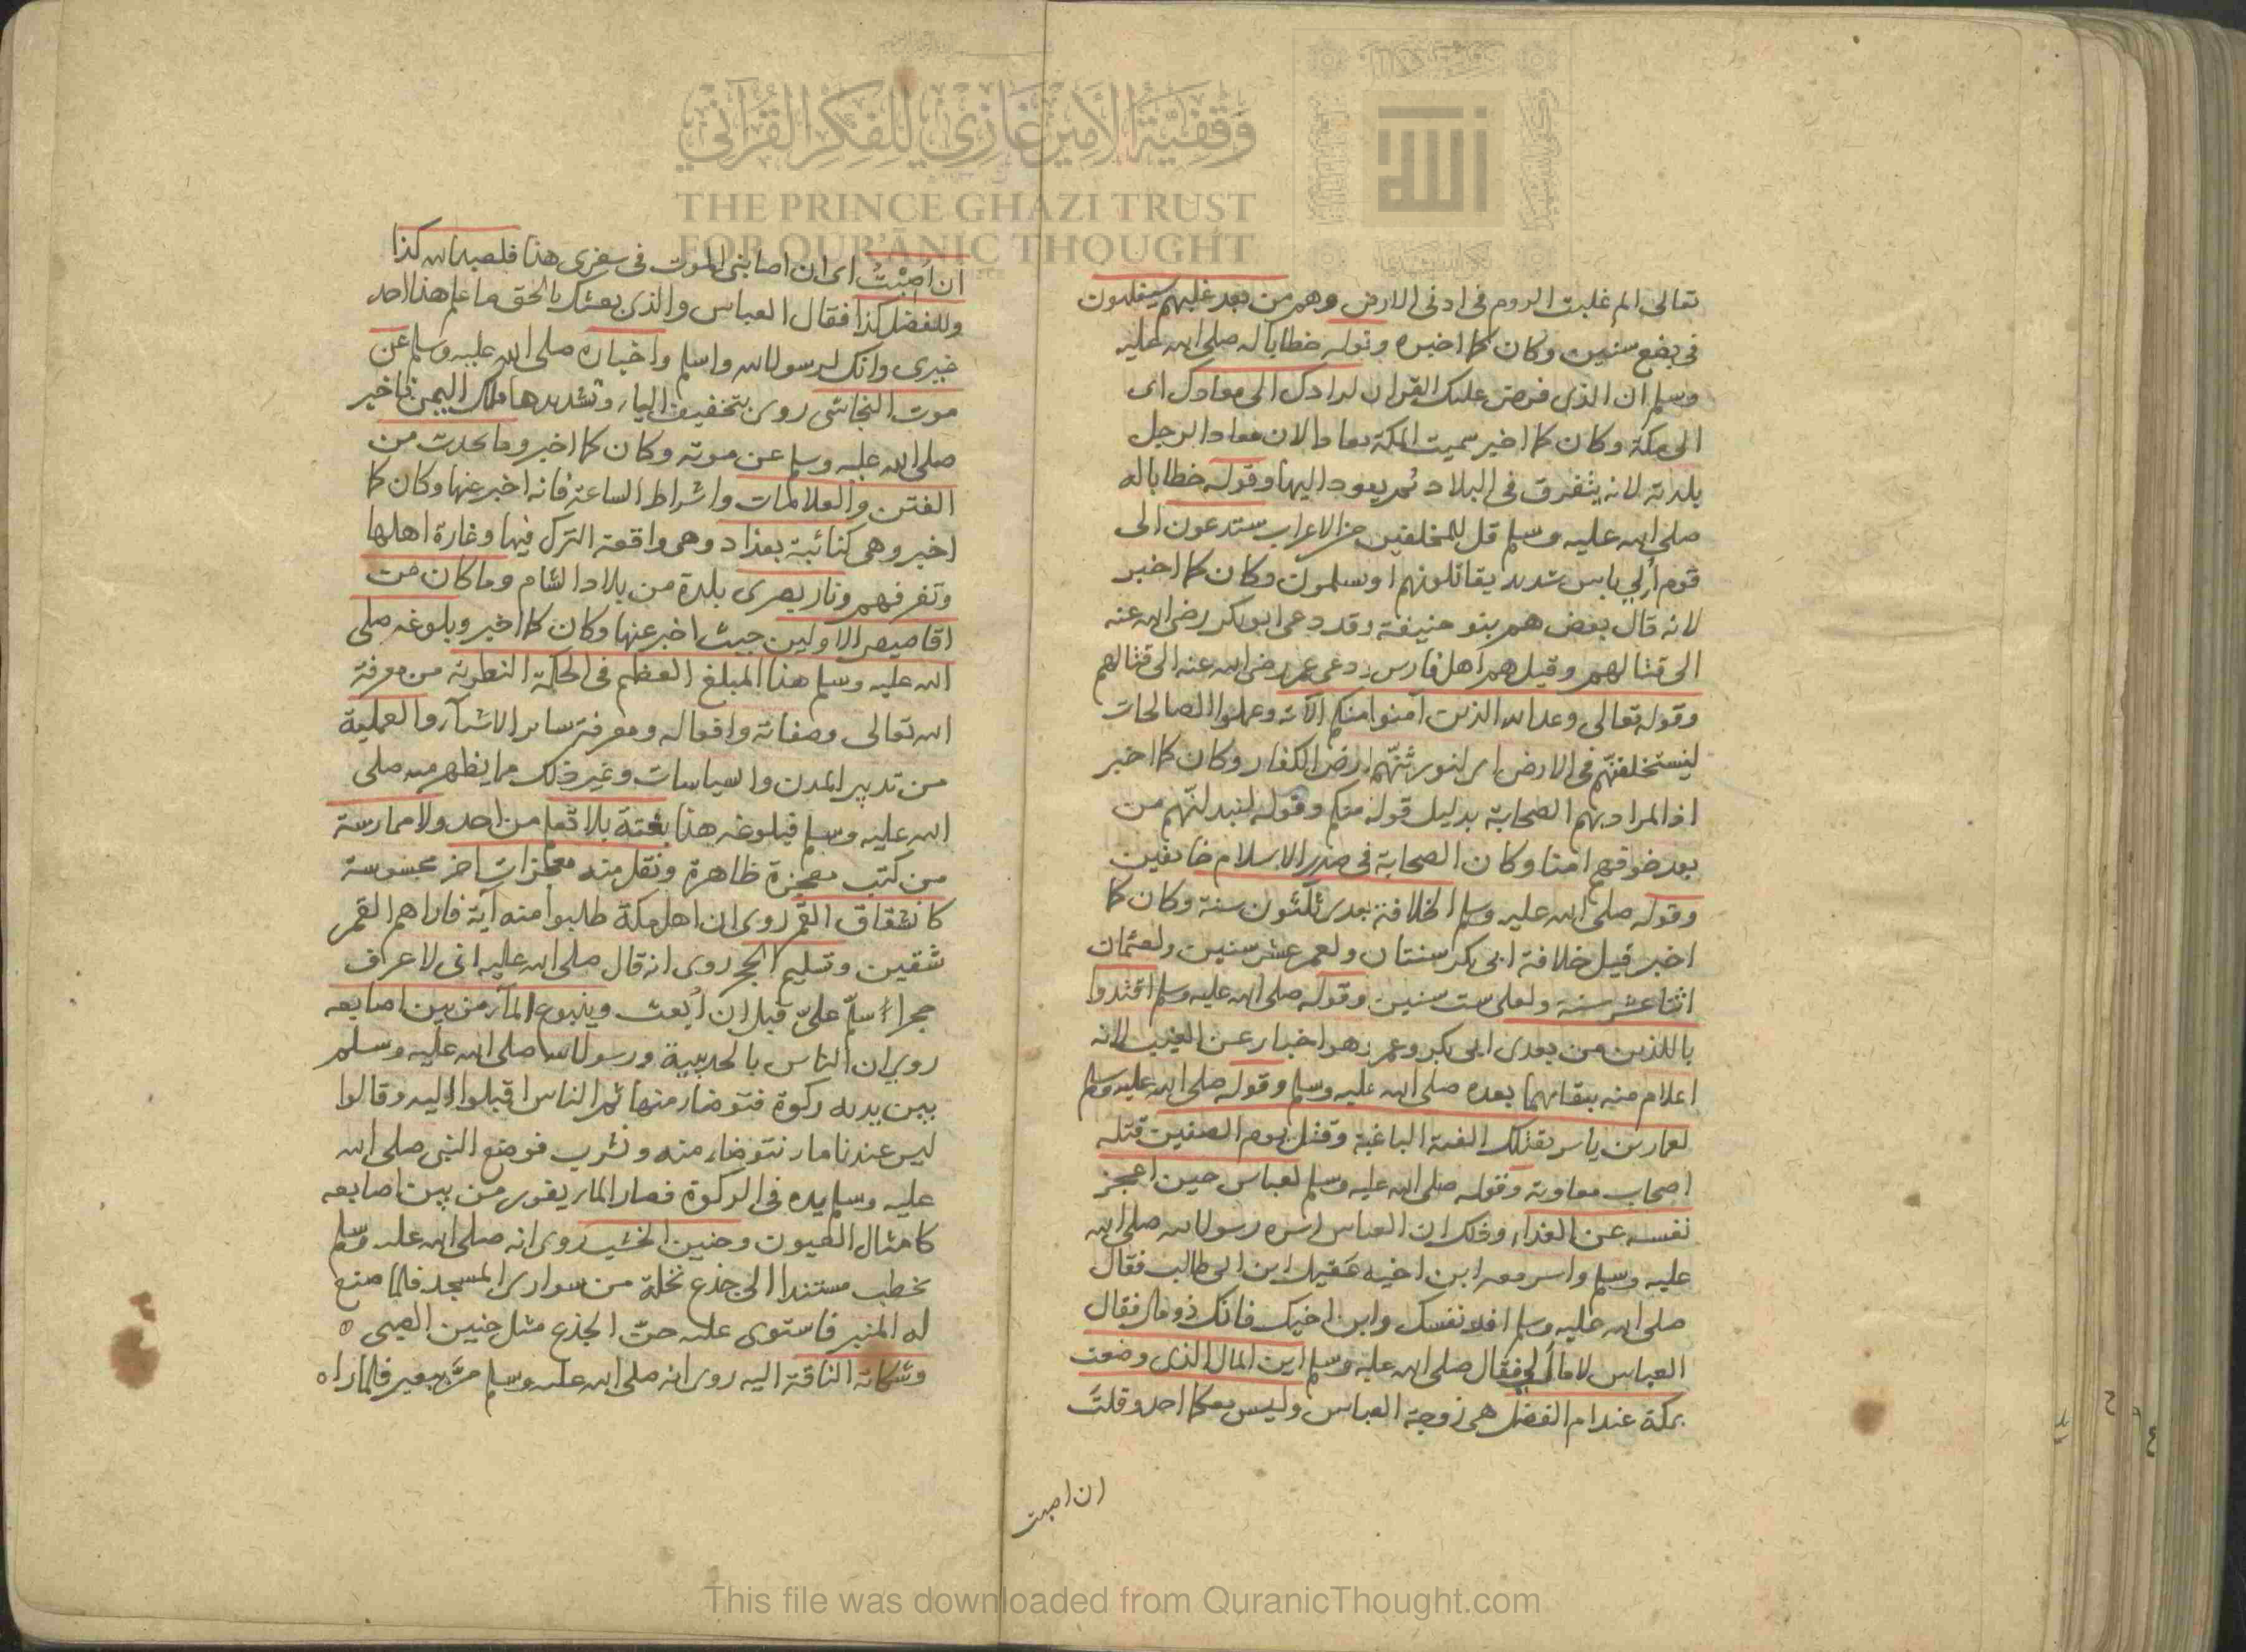 تعالى الم غلبت الروم فى ادنى الارض وهم من بعد غلبهم سيغلبون
فى بضع سنين وكان كما اخبره وقوله خطابا له صلى الله عليه
وسلم ان الذى فرض عليك القران لرادك الى معاد ك اى
الى مكة وكان كما اخبر سميت المكة معادا لان معاد الرجل
بلدته لانه يتفرق فى البلاد ثم يعود اليها وقوله خطابا له
صلى الله عليه وسلم قل للمخلفين من الاعراب ستدعون الى
قوم أولي باس شديد يقاتلونهم او يسلمون وكان كما اخبر
لانه قال بعض هم بنو حنيفة وقد دعى ابو بكر رضى الله عنه
الى قتالهم وقيل هم اهل فارس ودعى عمر رضى الله عنه الى قتالهم
وقوله تعالى وعد الله الذين آمنوا منكم الآية وعملوا الصالحات
ليستخلفنّهم فى الارض اى لنورثنّهم ارض الكفار وكان كما اخبر
اذ المراد بهم الصحابة بدليل قوله منكم وقوله ليبدلنّهم من
بعد خوفهم امنا وكان الصحابة فى صدر الاسلام خايفين
وقوله صلى الله عليه وسلم الخلافة بعدى ثلثون سنة وكان كما
اخبر قيل خلافة ابى بكر سنتان ولعمر عشر سنين ولعثمان
اثنا عشر سنة ولعلى ست سنين وقوله صلى الله عليه وسلم اقتدوا
باللذين من بعدى ابى بكر وعمر وهو اخبار عن الغيب لانه
اعلام منه ببقائهما بعده صلى الله عليه وسلم وقوله صلى الله عليه وسلم
لعمار بن ياسر يقتلك الفئة الباغية وقتل يوم الصفين قتله
اصحاب معاوية وقوله صلى الله عليه وسلم لعباس حين اعجز
نفسه عن الفداء وذلك ان العباس اسره رسول الله صلى الله
عليه وسلم واسر معه ابن اخيه عقيل ابن ابى طالب فقال
صلى الله عليه وسلم افد نفسك وابن اخيك فانك ذو مال فقال
العباس لا مال لي فقال صلى الله عليه وسلم اين المال الذى وضعت
بمكة عند ام الفضل هى زوجة العباس وليس معكما احد وقلت
ان اصبت
ان اُصِبْتُ اى ان اصابنى الموت فى سفرى هذا فلعبد الله كذا
وللفضل كذا فقال العباس والذى بعثك بالحق ما علم هذا احد
غيرى وانك لرسول الله واسلم واخباره صلى الله عليه وسلم عن
موت النجاشى روى بتخفيف الياء وتشديدها ملك اليمن فاخبر
صلى الله عليه وسلم عن موته وكان كما اخبر وما يحدث من
الفتن والعلامات واشراط الساعة فانه اخبر عنها وكان كما
اخبر وهى كنائبة بغداد وهى واقعة الترك فيها وغارة اهلها
وتفرقهم ونار بصرى بلدة من بلاد الشام وما كان من
اقاصيص الاولين حيث اخبر عنها وكان كما اخبر وبلوغه صلى
الله عليه وسلم هذا المبلغ العظيم فى الحكمة النظرية من معرفة
الله تعالى وصفاته وافعاله ومعرفة ساير الاشيآء والعملية
من تدبير المدن والسياسات وغير ذلك مما يظهر منه صلى
الله عليه وسلم فبلوغه هذا بغتة بلا تعلم من احد ولا ممارسة
من كتب معجزة ظاهرة ونقل منه معجزات اخر محسوسة
كانشقاق القمر روى ان اهل مكة طلبوا منه آية فاراهم القمر
شقين وتسليم الحجر روى انه قال صلى الله عليه انى لاعرف
حجرا سلّم علىّ قبل ان اُبعث وينبوع المآء من بين اصابعه
روي ان الناس بالحديبية ورسول الله صلى الله عليه وسلم
بين يديه ركوة فتوضأ منها ثم الناس اقبلوا اليه وقالوا
ليس عندنا ماء نتوضاء منه ونشرب فوضع النبى صلى الله
عليه وسلم يده فى الركوة فصار الماء يفور من بين اصابعه
كامثال العيون وحنين الخشب روى انه صلى الله عليه وسلم
يخطب مستندا الى جذع نخلة من سوارى المسجد فلما صنع
له المنبر فاستوى عليه حنّ الجذع مثل حنين الصبى
وشكاية الناقة اليه روى انه صلى الله عليه وسلم مرّ ببعير فلما راه
وقفية الأمير غازي للفكر القرآني
THE PRINCE GHAZI TRUST
FOR QUR'ĀNIC THOUGHT
This file was downloaded from QuranicThought.com